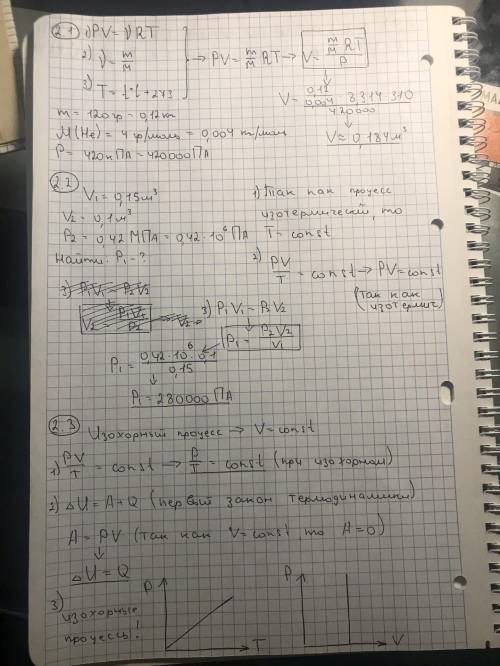 2.1 1) PV = νRT
2) ν = m/M
3) T = t° + 273
→ PV = m/M RT → V = (m/M RT)/P
V = (0,12/0,004 · 8,314 · 310)/420000
m = 120гр = 0,12кг
M(He) = 4 г/моль = 0,004 кг/моль
P = 420кПа = 420000Па
V ≈ 0,184м³
2.2 V₁ = 0,15м³
V₂ = 0,1м³
P₂ = 0,42МПа = 0,42·10⁶Па
Найти: P₁ - ?
1) Так как процесс
изотермический, то
T = const
2) PV/T = const → PV = const
(так как
изотерми)
3) P₁V₁ = P₂V₂
3) P₁V₁ = P₂V₂
P₁ = P₂V₂/V₁
P₁ = 0,42·10⁶·0,1/0,15
P₁ = 280000Па
2.3 Изохорный процесс → V = const
1) PV/T = const → P/T = const (при изохорном)
2) ΔU = A + Q (первый закон термодинамики)
A = PV (так как V = const то A = 0)
ΔU = Q
3) изохорные
процессы!
P
T
P
V